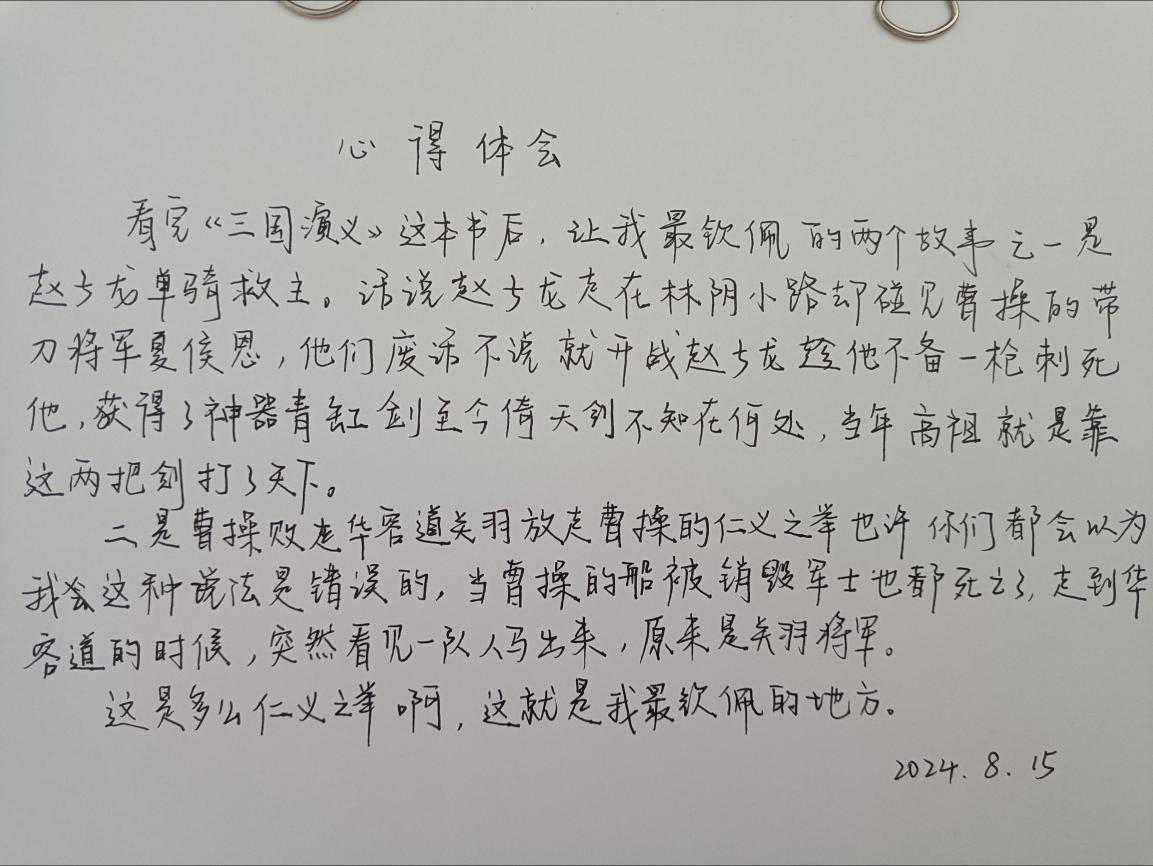 心得体会
看完《三国演义》这本书后，让我最钦佩的两个故事之一是
赵子龙单骑救主。话说赵子龙走在林阴小路却碰见曹操的带
刀将军夏侯恩，他们废话不说就开战赵子龙趁他不备一枪刺死
他，获得了神器青缸剑至今倚天剑不知在何处，当年高祖就是靠
这两把剑打了天下。
二是曹操败走华容道关羽放走曹操的仁义之举也许你们都会以为
我会这种说法是错误的，当曹操的船被销毁军士也都死之了，走到华
容道的时候，突然看见一队人马出来，原来是关羽将军。
这是多么仁义之举啊，这就是我最钦佩的地方。
2024.8.15